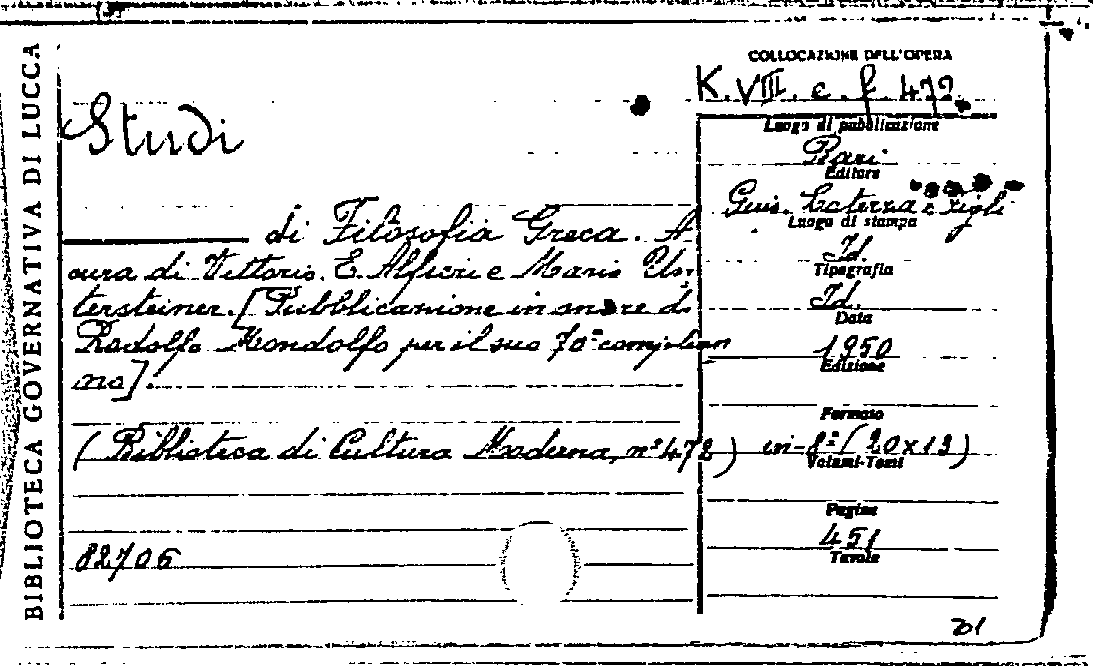 BIBLIOTECA GOVERNATIVA DI LUCCA
COLLOCAZIONE DELL'OPERA
K. VIII. c. f. 472.
Studi
di Filosofia Greca. A
cura di Vittorio. E. Alfieri e Mario Un-
tersteiner. [Pubblicazione in onore di
Rodolfo Mondolfo per il suo 70° complean
no].
(Biblioteca di Cultura Moderna, n° 472)
82706
Luogo di pubblicazione
Bari
Editore
Gius. Laterza e Figli
Luogo di stampa
Id.
Tipografia
Id.
Data
1950
Edizione
Formato
in-8° (20x13)
Volumi-Tomi
Pagine
451
Tavole